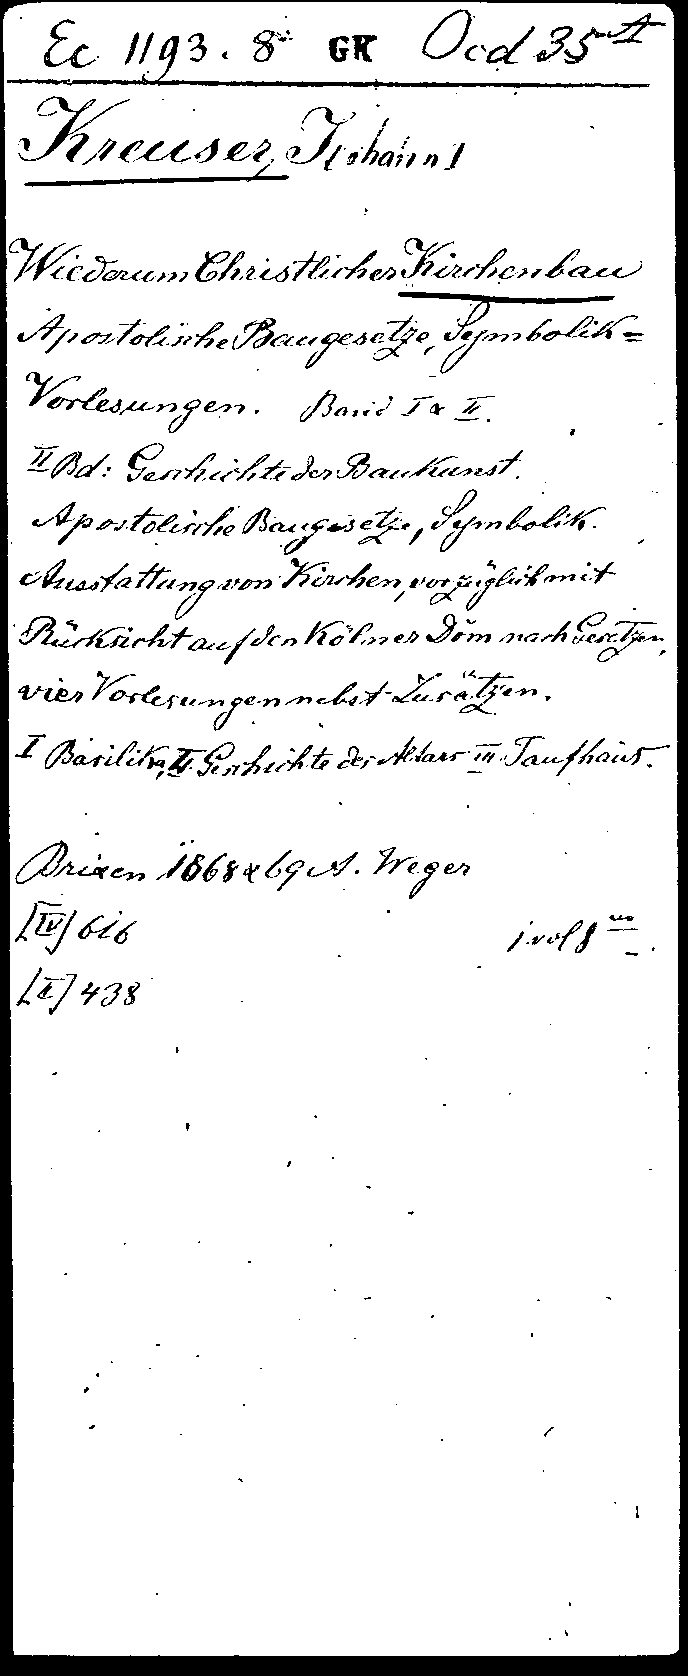 Ec 1193. 8° GK Ocd 35 A
Kreuser, J[ohann]
Wiederum Christlicher Kirchenbau
Apostolische Baugesetze, Symbolik=
Vorlesungen. Band I & II.
II Bd: Geschichte der Baukunst.
Apostolische Baugesetze, Symbolik.
Ausstattung von Kirchen, vorzüglich mit
Rücksicht auf den Kölner Dom nach Gesetzen,
vier Vorlesungen nebst Zusätzen.
I Basilika, II Geschichte des Altars III Taufhaus.
Brixen 1868 & 69 A. Weger
[IV] 616 1 vol 8
[II] 438